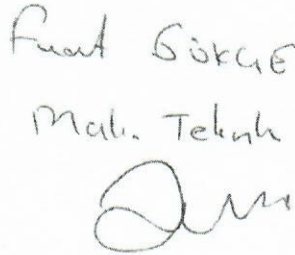 Fuat GÖKÇE
Mak. Teknik